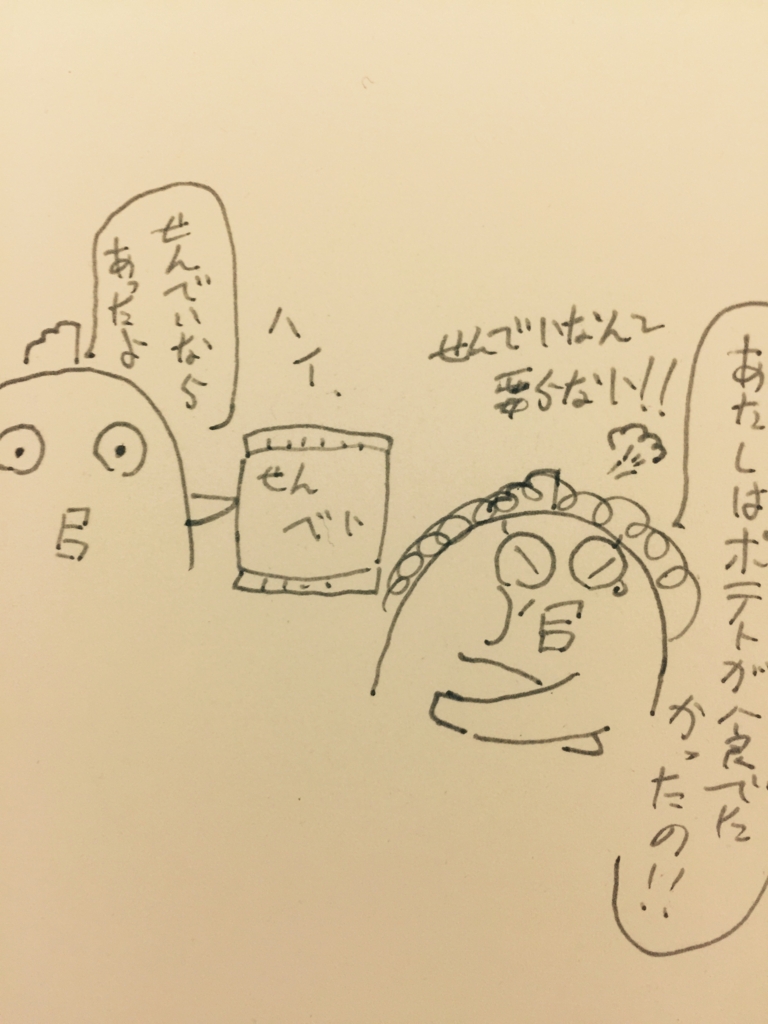 せんべいなら
あったよ
ハイ、
せん
べい
せんべいなんて
要らない!!
あたしはポテトが食べた
かったの!!